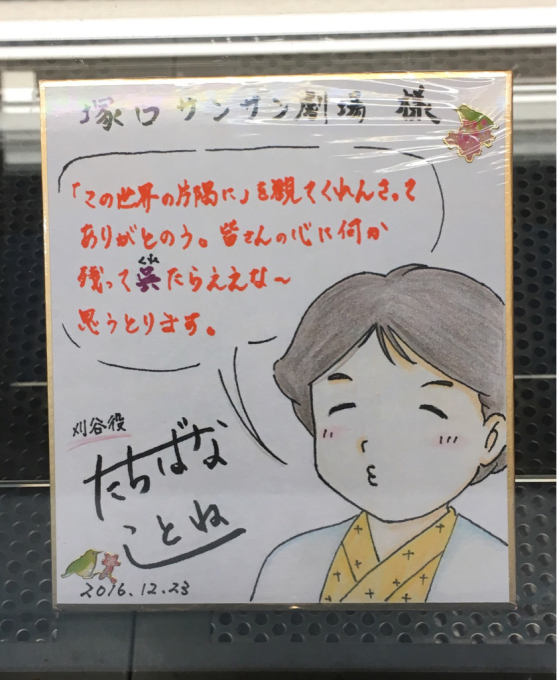 塚口サンサン劇場 様
「この世界の片隅に」を観てくれんさって
ありがとのう。皆さんの心に何か
くれ
残って呉たらええな~
思うとります。
刈谷役
たちばな
ことね
2016.12.23